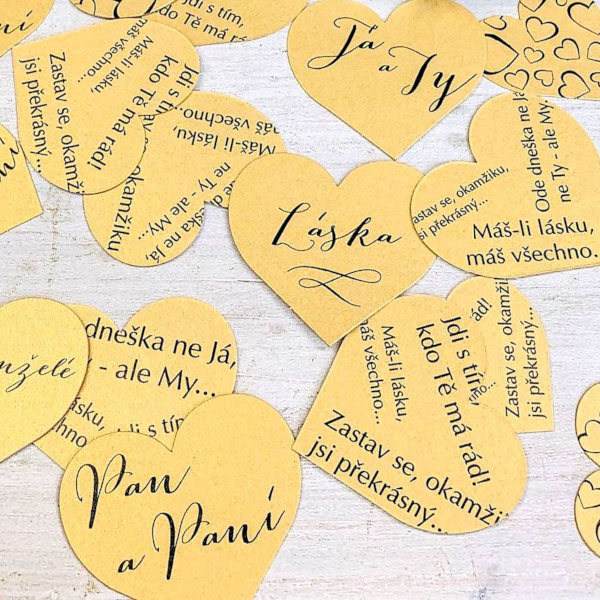 Jdi s tím,
kdo Tě má rád!
Máš-li lásku,
máš všechno...
Zastav se, okamžiku,
jsi překrásný...
Jdi s tím,
kdo Tě má rád!
Máš-li lásku,
máš všechno...
ne Ty - ale My...
Ode dneška ne já,
okamžiku
Já
a Ty
Láska
Zastav se, okamžiku,
jsi překrásný...
Ode dneška ne Já,
ne Ty - ale My...
Máš-li lásku,
máš všechno...
dneška ne Já,
- ale My...
lásku,
Jdi s tím,
Pan
a Paní
Máš-li lásku,
máš všechno...
Jdi s tím,
kdo Tě má rád!
Zastav se, okamži
jsi překrásný...
rád!
Zastav se, okamži
jsi překrásný...